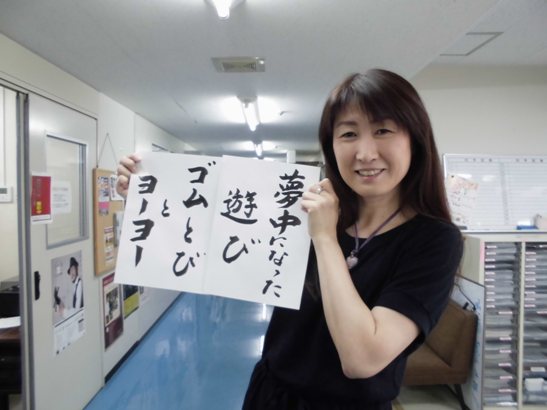 夢中になった
遊び
ゴムとび
と
ヨーヨー